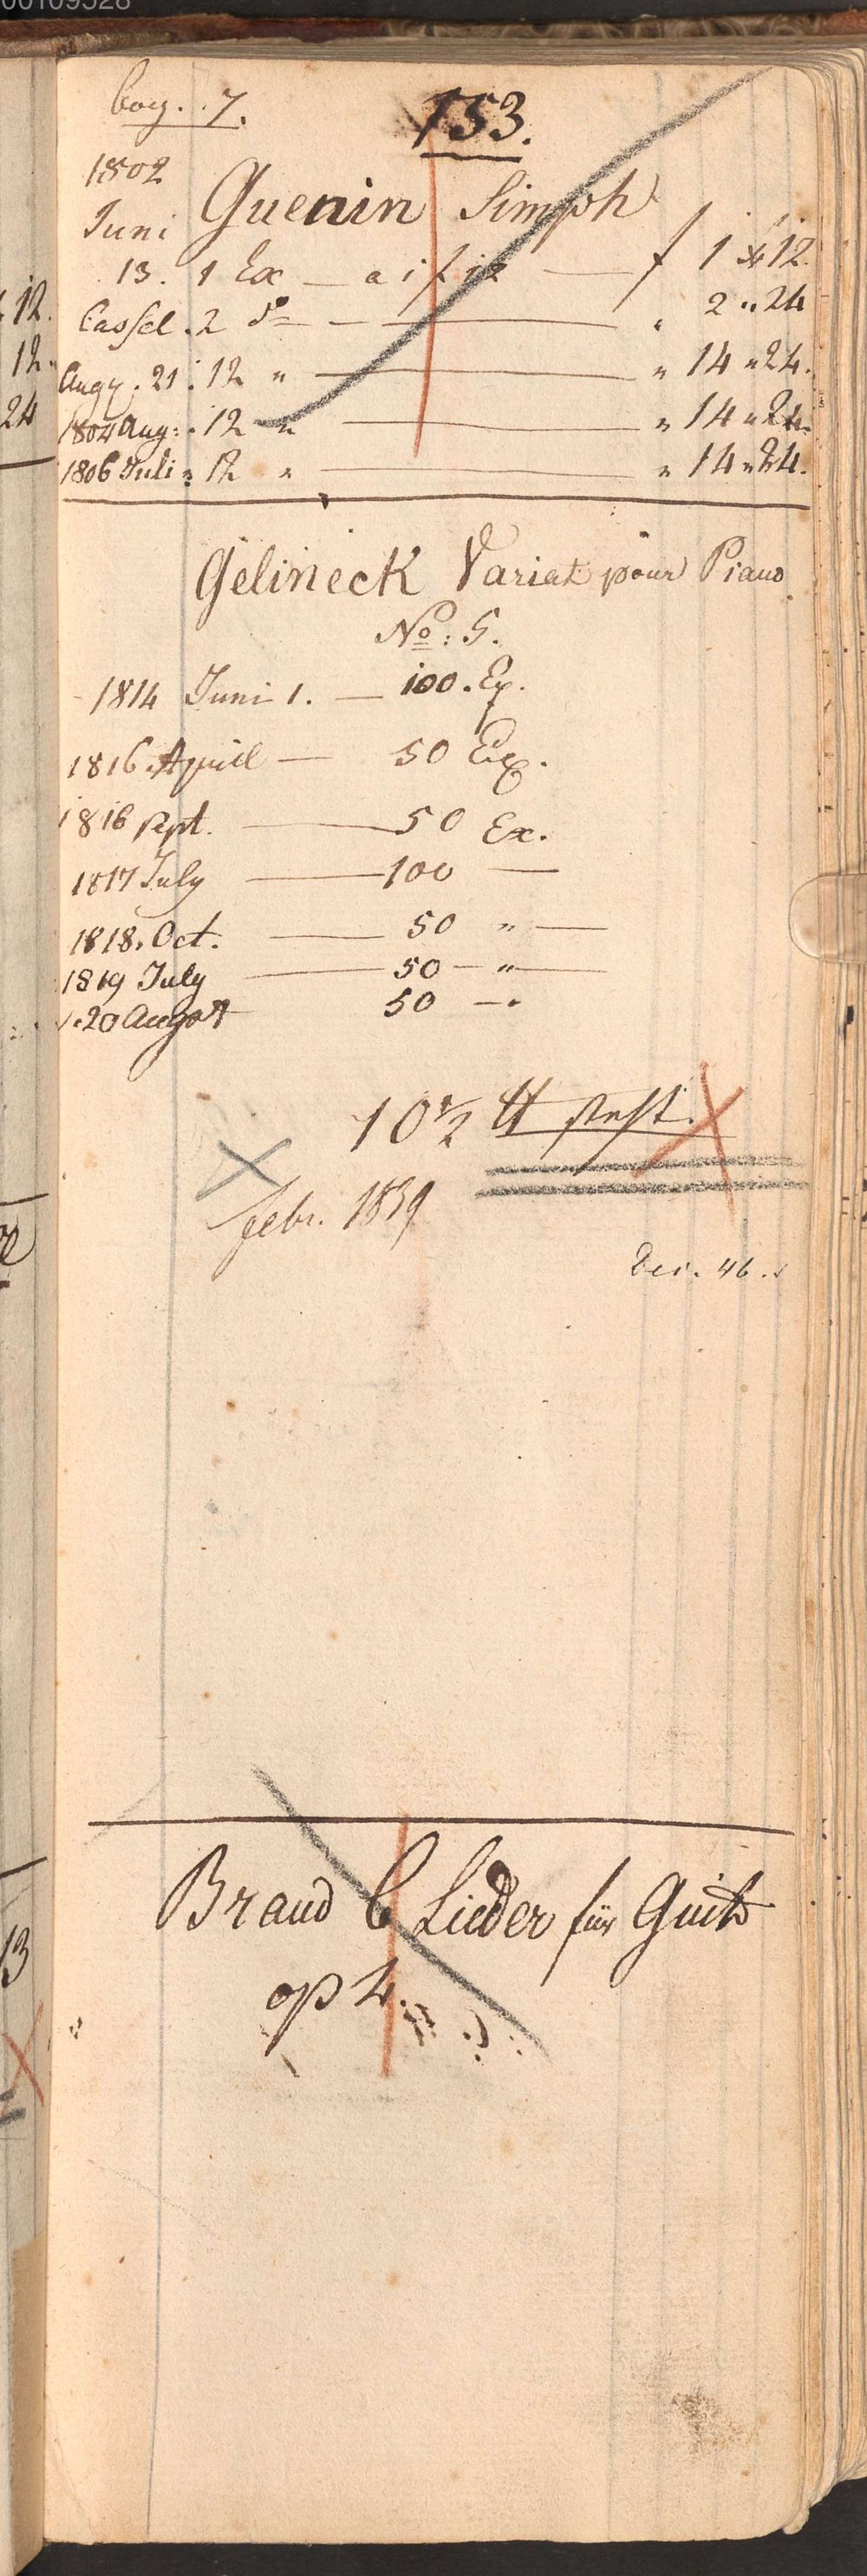 00109528
bog. 7.
153.
1802
Guenin Simph
Juni
13. 1 Ex — a 1 f 12 — f 1 x 12.
Cassel. 2 do — — „ 2 „ 24
Augy. 21. 12 „ — „ 14 „ 24.
1804 Aug: . 12 „ — „ 14 „ 24.
1806 Juli „ 12 „ — „ 14 „ 24.
Gelineck Variat pour Piano
No: 5.
1814 Juni 1. — 100. Ex.
1816. Aprill — 50 Ex.
1816 sept. — 50 Ex.
1817 July — 100 —
1818. Oct. — 50 „ —
1819 July — 50 — „ —
1.20 Augost 50 — „
10 1/2
febr. 1839
Dec. 46.
Brand C Lieder für Guit
op 4.